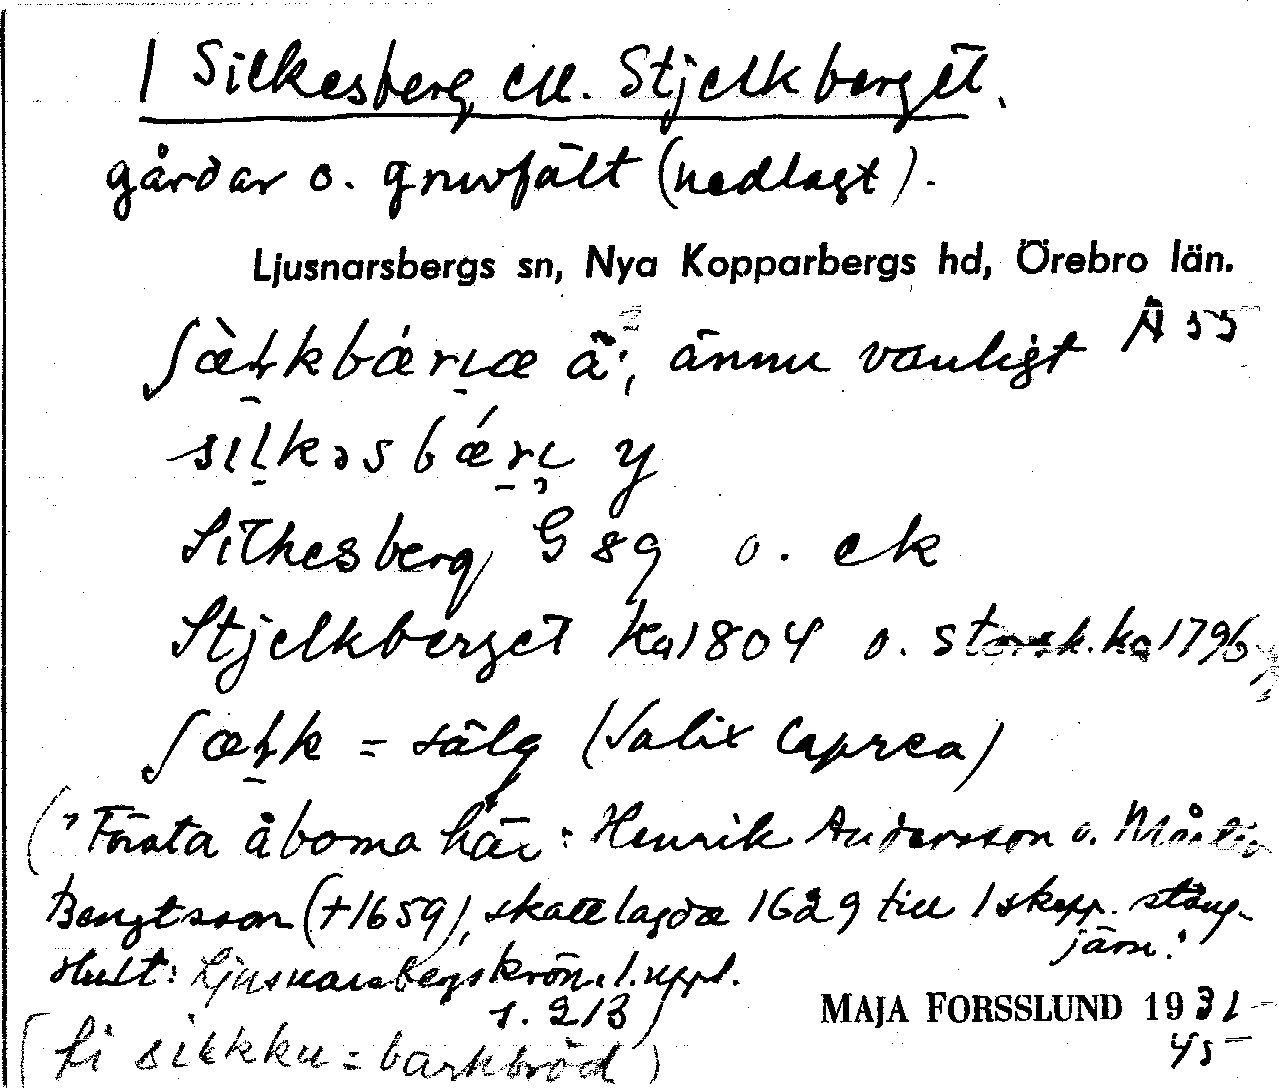 1 Silkesberg ell. Stjelkberget.
gårdar o. gruvfält (nedlagt).
Ljusnarsbergs sn, Nya Kopparbergs hd, Örebro län.
ʃæ̀ɫkbǽrɩæ ä, ännu vanligt Ä 55
silkəsbǽrɩ y
Silkesberg G 89 o. ek
Stjelkberget ka 1804 o. storsk. ka 1796
ʃæɫk = sälg (Salix Caprea)
("Första åborna här: Henrik Andersson o. Mårten
Bengtsson (+1659), skattlagda 1629 till 1 skepp. stång-
järn."
Hult: Ljusnarsbergskrön. 1. uppl.
s. 213)
MAJA FORSSLUND 1931
45
(fi silkku = barkbröd)